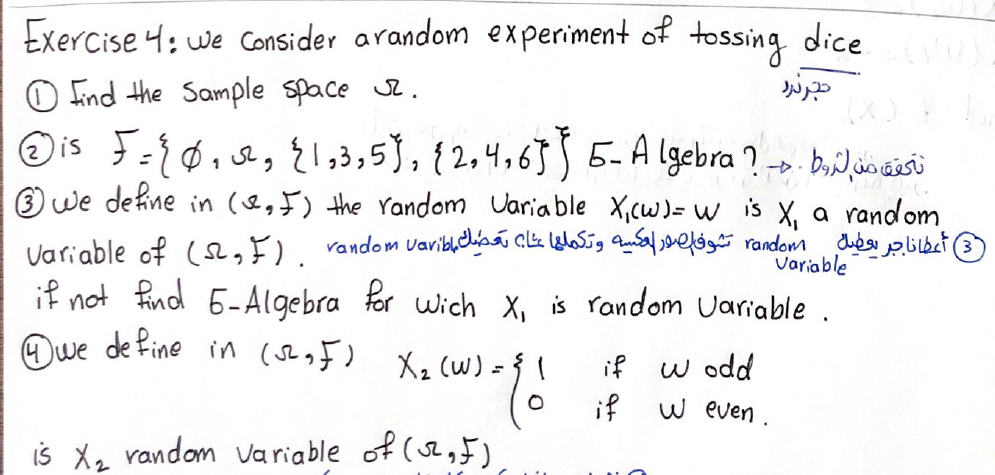 Exercise 4: we Consider a random experiment of tossing dice
حجر نرد
① find the Sample space Ω.
② is F={ø, Ω, {1,3,5}, {2,4,6}} б-Algebra? → نتحقق من الشروط.
③ we define in (Ω,F) the random Variable X₁(w)= w is X₁ a random
Variable of (Ω,F). random varible وتكملها عشان تعطيك الصور العكسية تشوف random Variable أعطانا ③
if not find б-Algebra for wich X₁ is random Variable.
④ we define in (Ω,F) X₂(w) = { 1 if w odd
0 if w even.
is X₂ random Variable of (Ω,F)